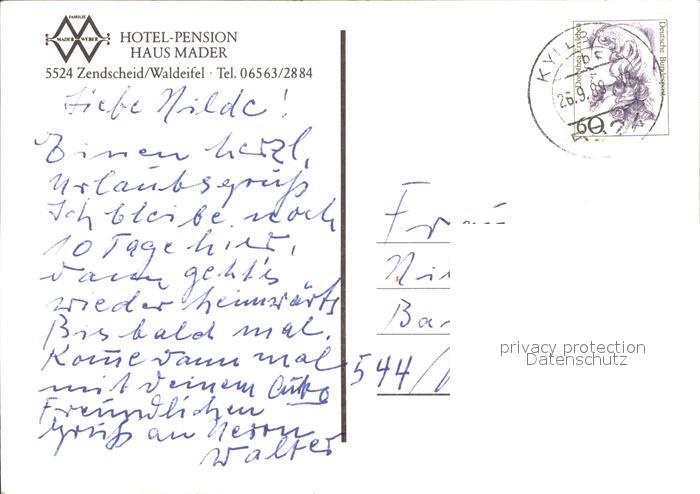 FAMILIE
MADER WEBER
HOTEL-PENSION
HAUS MADER
5524 Zendscheid/Waldeifel · Tel. 06563/2884
Liebe Hilde!
Einen herzl,
Urlaubsgruß
Ich bleibe noch
10 Tage hier,
dann geht's
wieder heimwärts
Bis bald mal.
Kome dann mal
mit deinem
Freundlichen
Gruß an Herrn
Walter
Deutsche Bundespost
60
KYLL
26.9.88
Frau
Ba
544/
privacy protection
Datenschutz